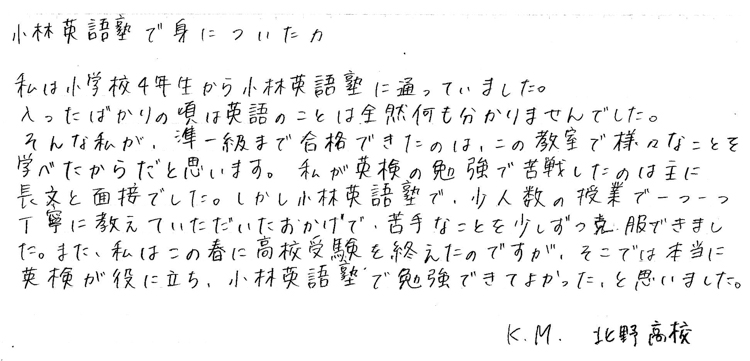 小林英語塾で身についた力
私は小学校4年生から小林英語塾に通っていました。
入ったばかりの頃は英語のことは全然何も分かりませんでした。
そんな私が、準一級まで合格できたのは、この教室で様々なことを
学べたからだと思います。私が英検の勉強で苦戦したのは主に
長文と面接でした。しかし小林英語塾で、少人数の授業で一つ一つ
丁寧に教えていただいたおかげで、苦手なことを少しずつ克服できまし
た。また、私はこの春に高校受験を終えたのですが、そこでは本当に
英検が役に立ち、小林英語塾で勉強できてよかった、と思いました。
K.M. 北野高校